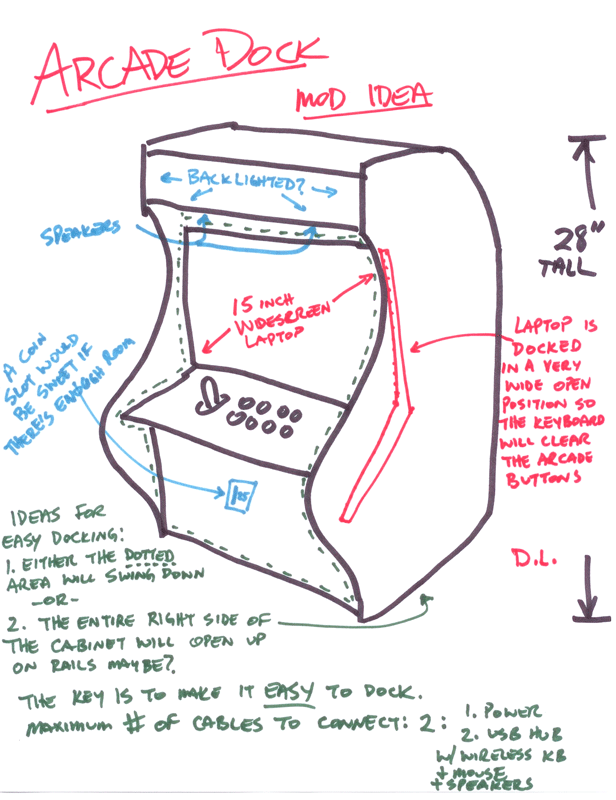 ARCADE DOCK
MOD IDEA
← BACKLIGHTED? →
SPEAKERS
28"
TALL
15 INCH
WIDESCREEN
LAPTOP
LAPTOP IS
DOCKED
IN A VERY
WIDE OPEN
POSITION SO
THE KEYBOARD
WILL CLEAR
THE ARCADE
BUTTONS
A COIN
SLOT WOULD
BE SWEET IF
THERE'S ENOUGH ROOM
25
D.L.
IDEAS FOR
EASY DOCKING:
1. EITHER THE DOTTED
AREA WILL SWING DOWN
-OR-
2. THE ENTIRE RIGHT SIDE OF
THE CABINET WILL OPEN UP
ON RAILS MAYBE?
THE KEY IS TO MAKE IT EASY TO DOCK.
MAXIMUM # OF CABLES TO CONNECT: 2:
1. POWER
2. USB HUB
W/ WIRELESS KB
+ MOUSE
+ SPEAKERS